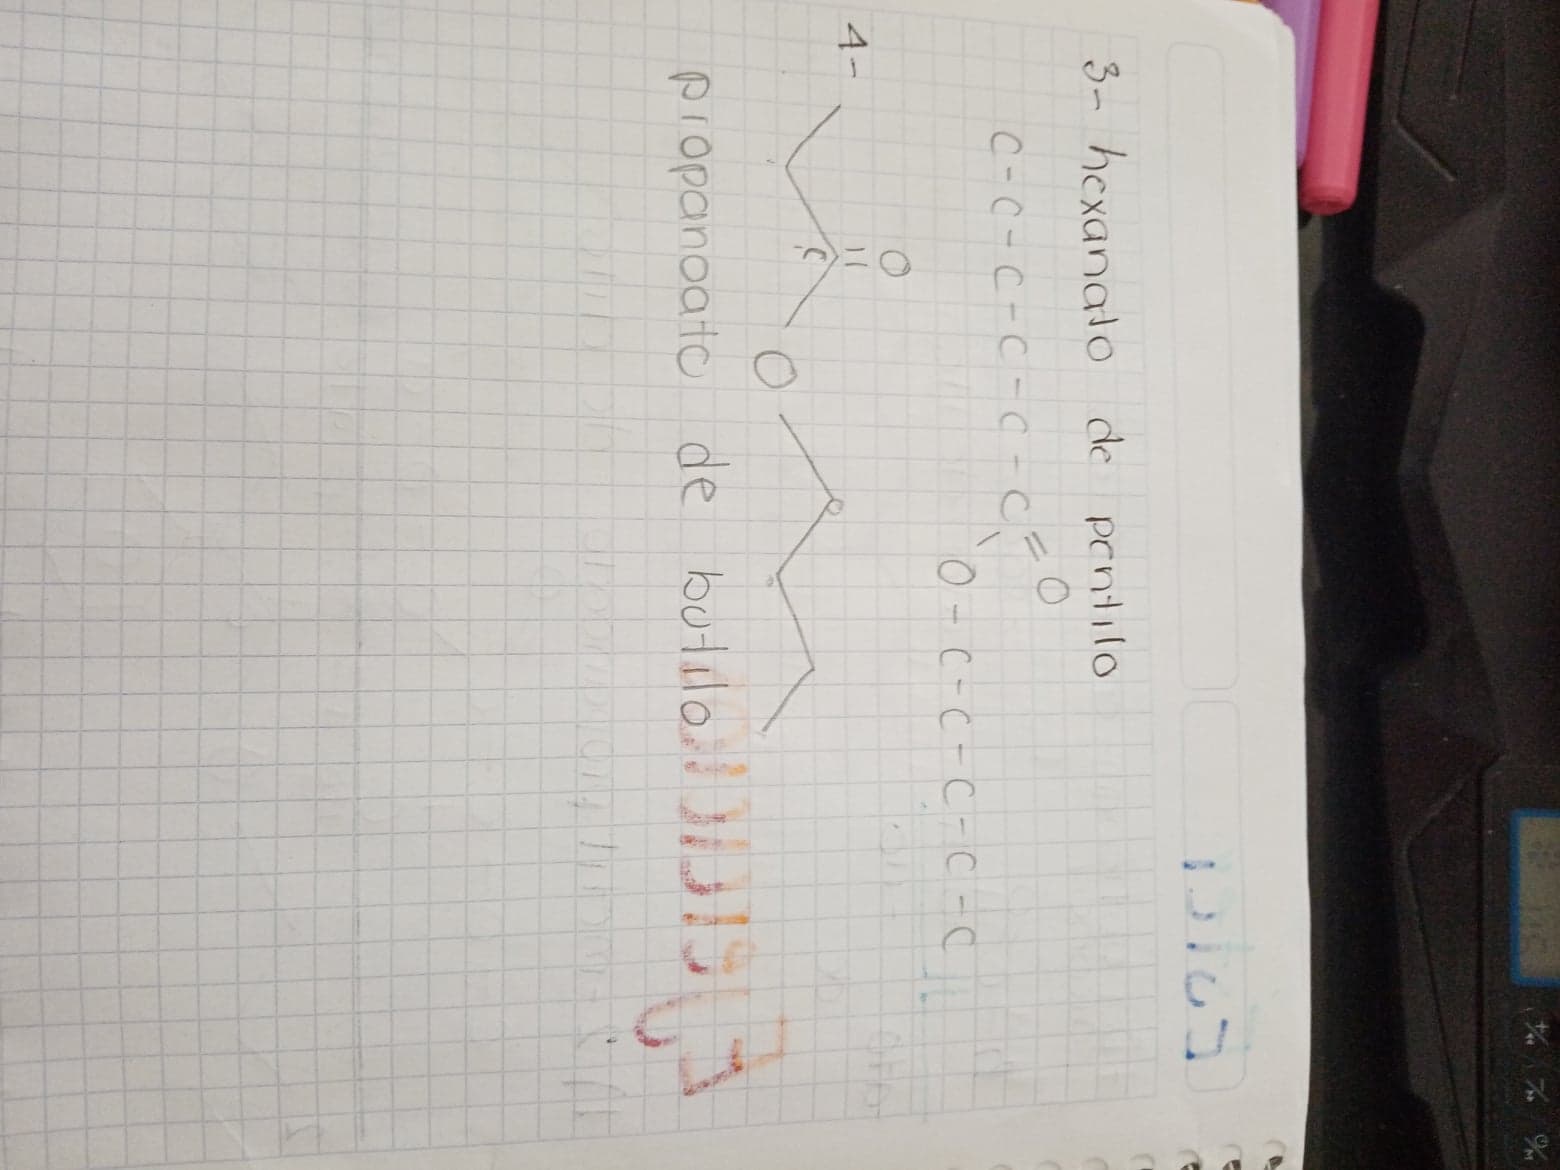 3- hexanato de pentilo
C-C-C-C-C-C=O
O-C-C-C-C-C
4-
O
C
O
propanoato de butilo